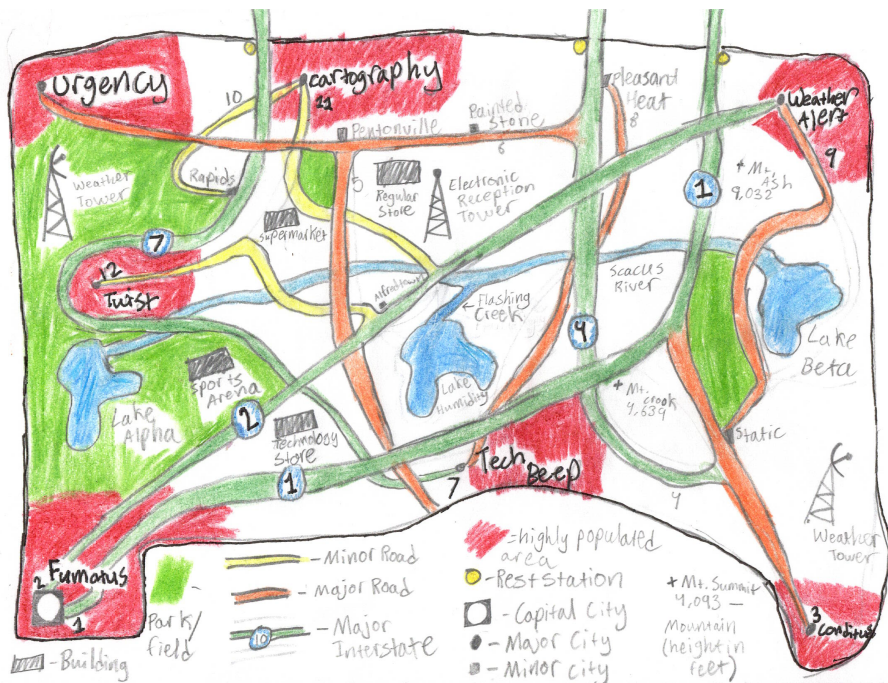 Urgency
10
Cartography
11
Pleasant
Heat
8
Weather
Alert
9
Pentonville
Painted
Stone
6
5
Weather
Tower
Rapids
Regular
Store
Electronic
Reception
Tower
+ Mt.
Ash
9,032
1
Supermarket
7
12
Twist
Scacus
River
Flashing
Creek
4
Lake
Beta
Lake
Humidity
Sports
Arena
Lake
Alpha
2
+ Mt.
Crook
4,639
Technology
Store
1
Static
Tech
Beep
7
4
Weather
Tower
2 Fumatus
1
3
Conditus
Park/
field
- Building
- Minor Road
- Major Road
10
- Major
Interstate
=highly populated
area
-Rest Station
- Capital City
- Major City
- Minor City
+ Mt. Summit
4,093 —
Mountain
(height in
feet)